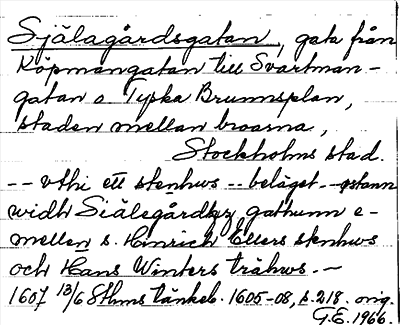 Själagårdsgatan, gata från
Köpmangatan till Svartman-
gatan o. Tyska Brunnsplan,
staden mellan broarna,
Stockholms stad.
-- vthi ett stenhws -- beläget --
widh Siälegård gathunn e-
mellen s. Hinrich Ellers stenhws
och Hans Winters trähws. --
1607 13/6 Sthms tänkeb. 1605-08, s. 218. orig.
G.E. 1966.